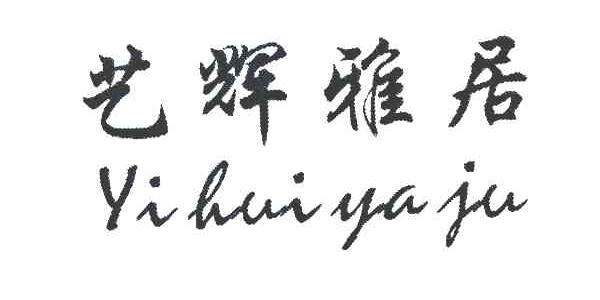 艺辉雅居
Yi hui ya ju